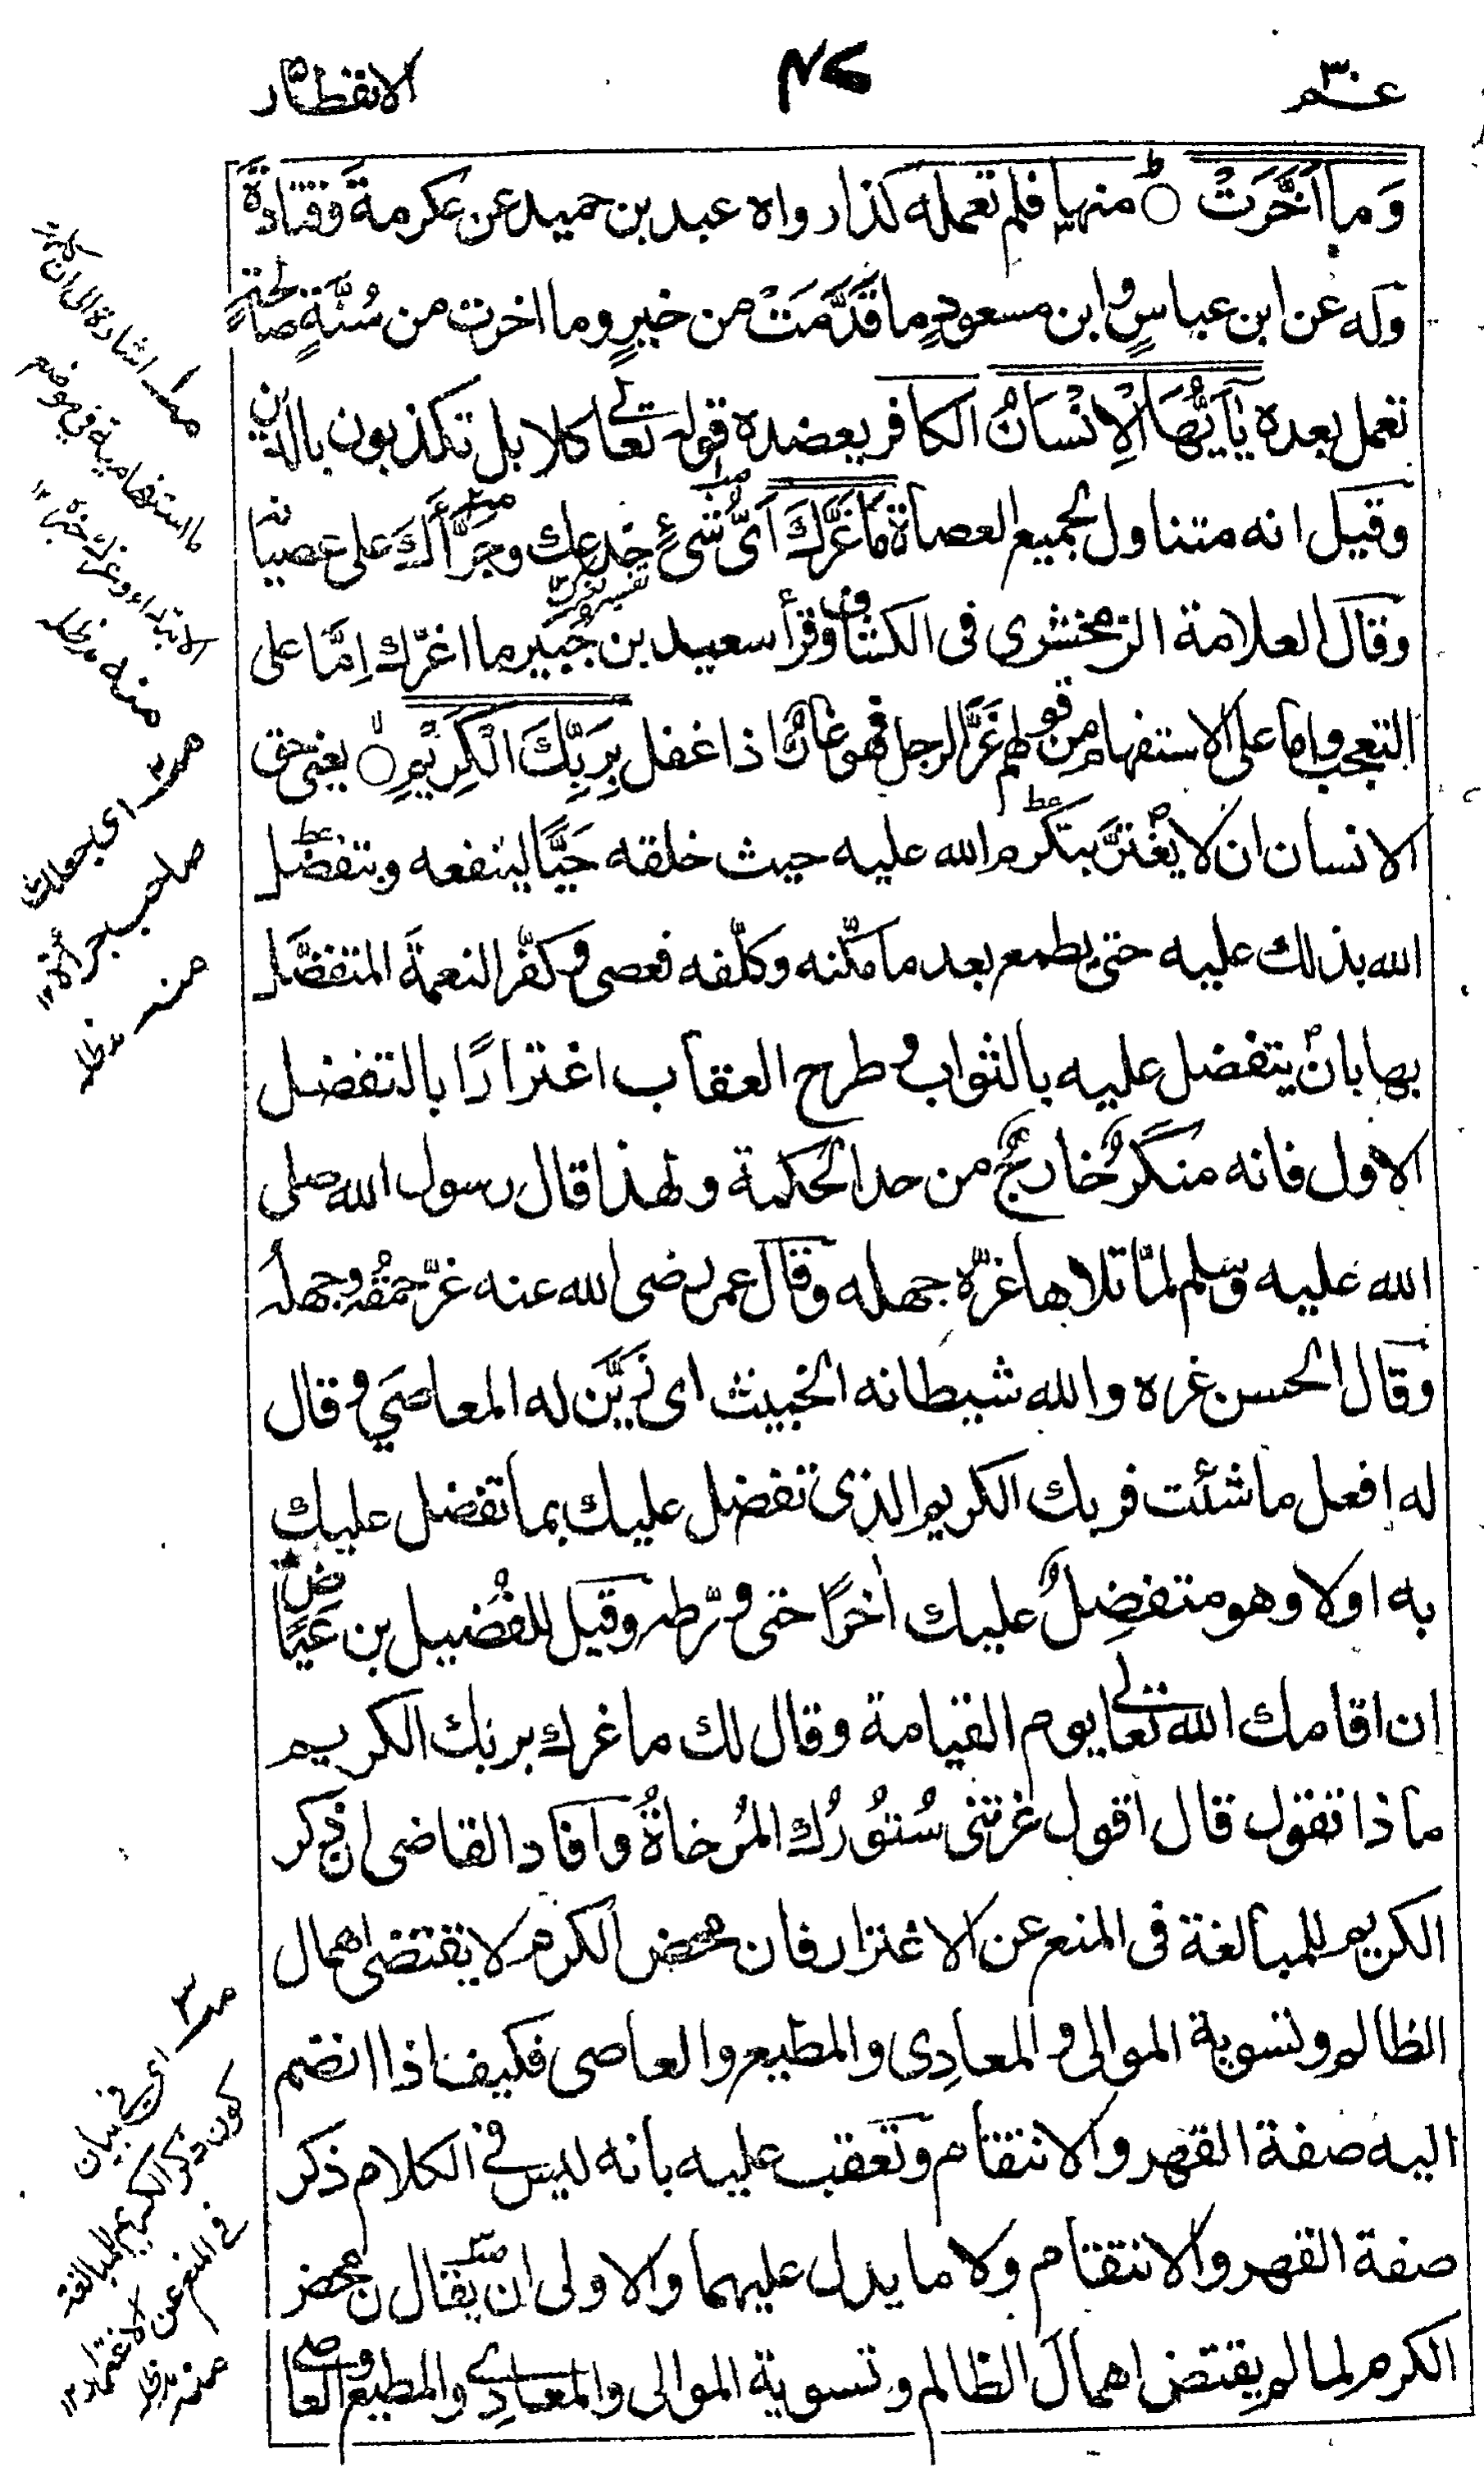 عـم ٣٠
٤٧
الانفطار
وَمَا أَخَّرَتْ ○ منها فلم تعمله كذا رواه عبد بن حميد عن عكرمة وقتادة
وله عن ابن عباسٍ وابن مسعودٍ ما قَدَّمَتْ من خيرٍ وما اخرت من سُنَّةٍ صالحةٍ
تعمل بعده يٰٓاَيُّهَا الْاِنْسَانُ الكافر يعضده قوله تعالى كلا بل تكذبون بالدين
وقيل انه متناول لجميع العصاة مَا غَرَّكَ اَىُّ شىءٍ خدعك وجَرَّأَكَ على عصيانه
وقال العلامة الزمخشرى فى الكشاف وقرأ سعيد بن جُبَير ما اغرّك اِمَّا على
التعجب واما على الاستفهام من قولهم غَرَّ الرجل فهو غارٌّ اذا غفل بِرَبِّكَ الْكَرِيْمِ ○ يعنى حق
الانسان ان لا يغْتَرَّ بتكرّم الله عليه حيث خلقه حَيًّا لينفعه وبتفضّل
الله بذلك عليه حتى يطمع بعد ما مكّنه وكلّفه فعصى وكفَّر النعمةَ المتفضَّل
بها بان يتفضل عليه بالثواب وطرح العقاب اغترارًا بالتفضل
الاول فانه منكَرٌ خارجٌ من حد الحكمة ولهذا قال رسول الله صلى
الله عليه وسلم لمّا تلاها غرّه جهله وقال عمر رضى الله عنه غرّه حمقُه وجهلُه
وقال الحسن غره والله شيطانه الخبيث اى زَيَّن له المعاصَي وقال
له افعل ما شئت فربك الكريم الذى تفضل عليك بما تفضل عليك
به اولا وهو متفضِلٌ عليك اٰخرًا حتى ورّطه وقيل للفُضيل بن عيَاض
ان اقامك الله تعالى يوم القيامة وقال لك ما غرك بربك الكريم
ماذا تقول قال اقول غرتنى سُتُورُك المُرخاةُ وافاد القاضى ان ذكر
الكريم للمبالغة فى المنع عن الاغترار فان محض الكرم لا يقتضى اهمال
الظالم وتسوية الموالى والمعادِى والمطيع والعاصى فكيف اذا انضم
اليه صفة القهر والانتقام وتعقب عليه بانه ليس فى الكلام ذكر
صفة القهر والانتقام ولا ما يدل عليهما والاولى ان يقال ان محض
الكرم لِما لم يقتض اهمالَ الظالم وتسوية الموالى والمعادِى والمطيع والعاصى
صـ١ اشارة الى ان كلمة
ما استفهامية فى موضع
الابتداء وغرك خبره ١٢
منه مدظله
صـ٢ اى جعلك
صاحب جرأة ١٢
منه مدظله
صـ٣ اى فى بيان
كون ذكر الكريم للمبالغة
فى المنع عن الاغترار ١٢
منه مدظله